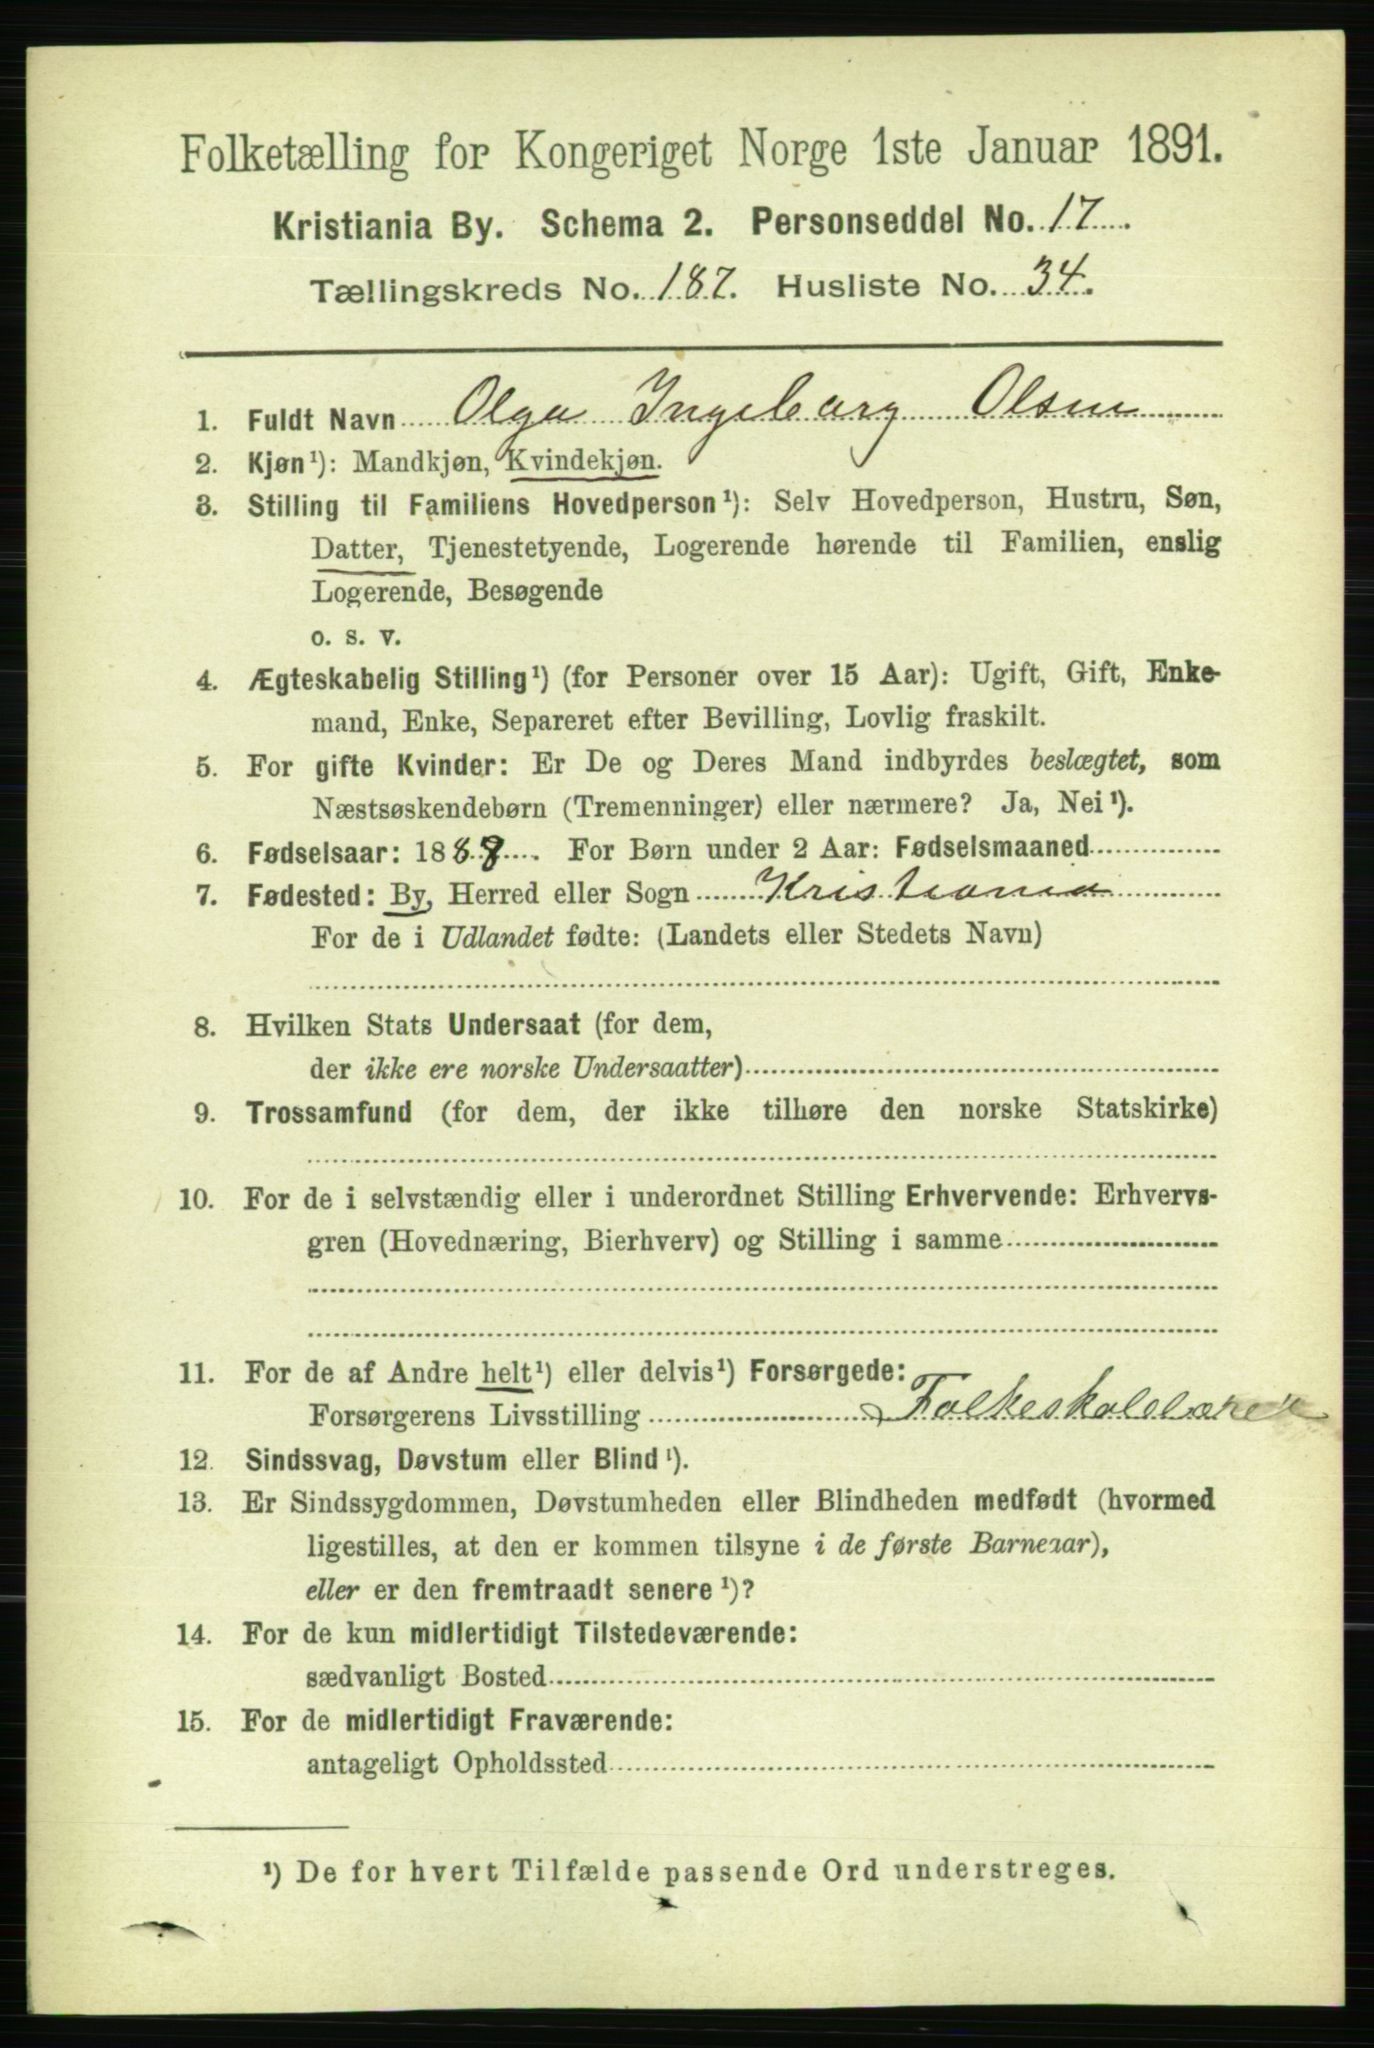 Folketælling for Kongeriget Norge 1ste Januar 1891.
Kristiania By. Schema 2. Personseddel No. 17.
Tællingskreds No. 187. Husliste No. 34.
1. Fuldt Navn Olga Ingeborg Olsen
2. Kjøn¹): Mandkjøn, Kvindekjøn.
3. Stilling til Familiens Hovedperson¹): Selv Hovedperson, Hustru, Søn,
Datter, Tjenestetyende, Logerende hørende til Familien, enslig
Logerende, Besøgende
o. s. v.
4. Ægteskabelig Stilling¹) (for Personer over 15 Aar): Ugift, Gift, Enke-
mand, Enke, Separeret efter Bevilling, Lovlig fraskilt.
5. For gifte Kvinder: Er De og Deres Mand indbyrdes beslægtet, som
Næstsøskendebørn (Tremenninger) eller nærmere? Ja, Nei¹).
6. Fødselsaar: 1888. For Børn under 2 Aar: Fødselsmaaned
7. Fødested: By, Herred eller Sogn Kristiania
For de i Udlandet fødte: (Landets eller Stedets Navn)
8. Hvilken Stats Undersaat (for dem,
der ikke ere norske Undersaatter)
9. Trossamfund (for dem, der ikke tilhøre den norske Statskirke)
10. For de i selvstændig eller i underordnet Stilling Erhvervende: Erhvervs-
gren (Hovednæring, Bierhverv) og Stilling i samme
11. For de af Andre helt¹) eller delvis¹) Forsørgede:
Forsørgerens Livsstilling Folkeskolelærer
12. Sindssvag, Døvstum eller Blind¹).
13. Er Sindssygdommen, Døvstumheden eller Blindheden medfødt (hvormed
ligestilles, at den er kommen tilsyne i de første Barneaar),
eller er den fremtraadt senere¹)?
14. For de kun midlertidigt Tilstedeværende:
sædvanligt Bosted
15. For de midlertidigt Fraværende:
antageligt Opholdssted
¹) De for hvert Tilfælde passende Ord understreges.